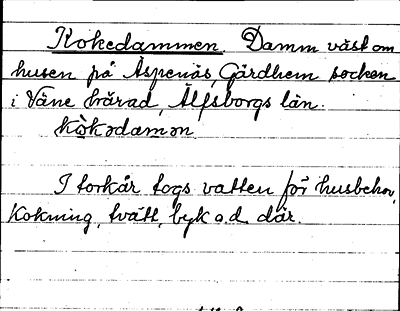 Kokedammen. Damm väst om
husen på Åspenäs, Gärdhem socken
i Väne härad, Älfsborgs län.
kòkədamən
I torkår togs vatten för husbehov,
Kokning, tvätt, byk o.d. där.